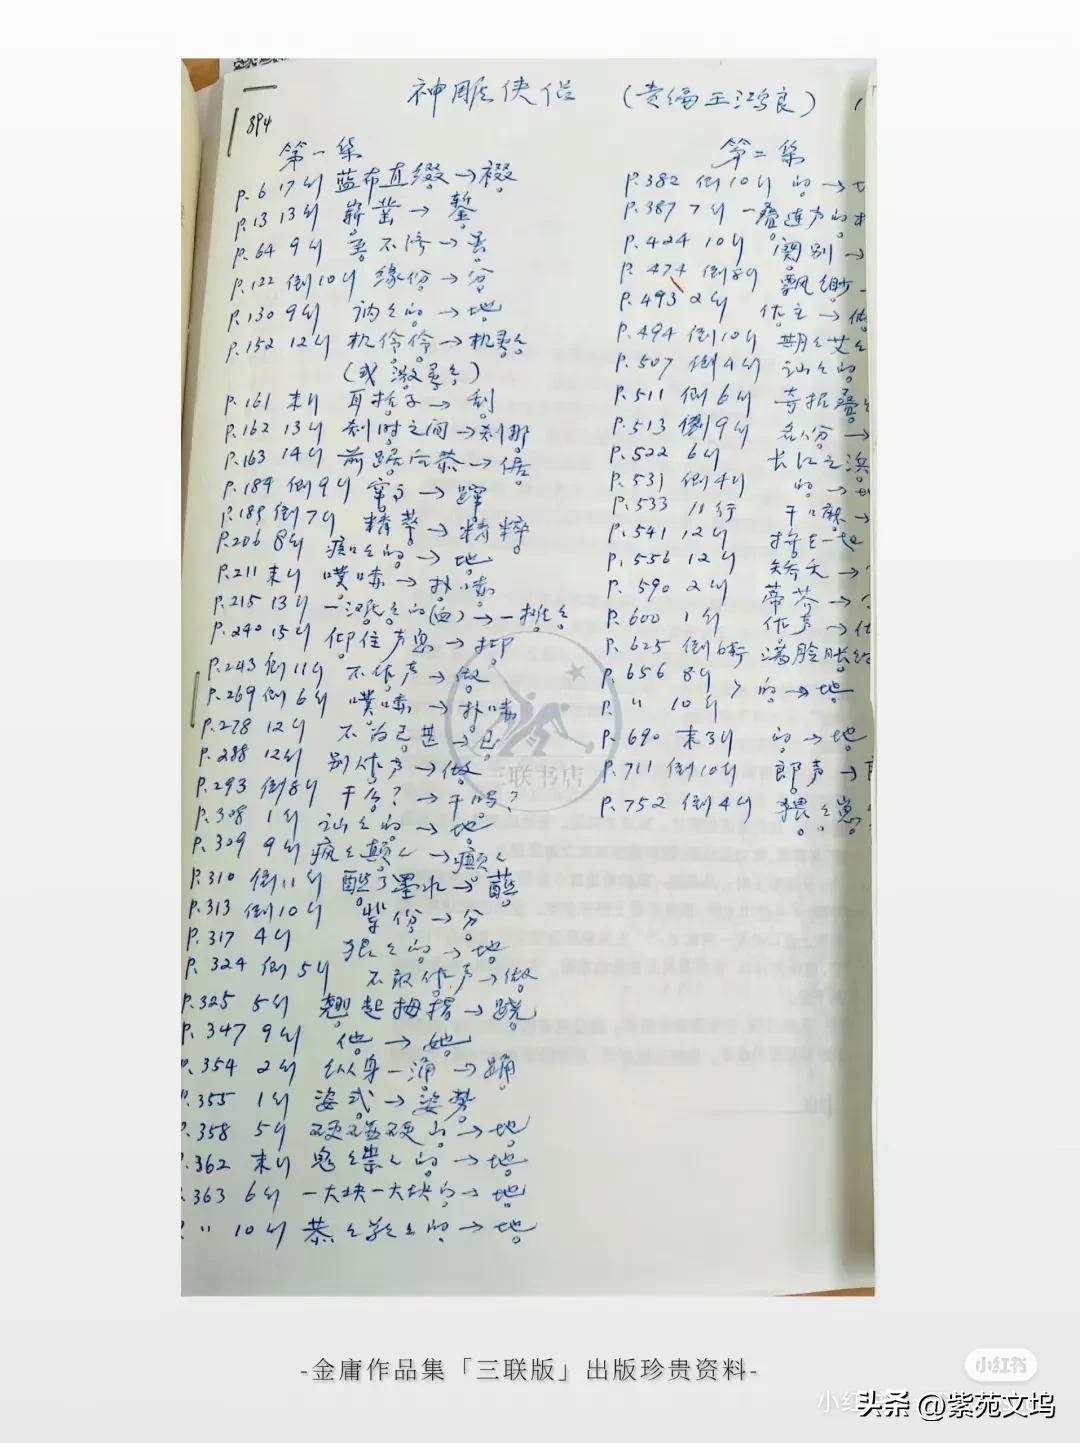 神雕侠侣 (责编王鸿良)
894
第一集
P.6 17行 蓝布直缀→裰
P.13 13行 崭凿→錾
P.64 9行 不 →
P.122 倒10行 缘份→分
P.130 9行 讷々的→地
P.152 12行 机伶伶→机灵々
(或激灵々)
P.161 末行 耳括子→刮
P.162 13行 刹时之间→刹那
P.163 14行 前踞后恭→倨
P.184 倒9行 →蹿
P.189 倒7行 精萃→精粹
P.206 8行 的→地
P.211 末行 噗嗤→扑嗤
P.215 13行
P.240 15行 仰住声息→抑
P.243 倒11行 不作声→做
P.269 倒6行 噗嗤→扑嗤
P.278 12行 不为己甚→已
P.288 12行 别作声→做
P.293 倒8行 干么?→干吗?
P.308 1行 讪々的→地
P.309 9行 疯々颠々→癫々
P.310 倒11行 醮了墨水→蘸
P.313 倒10行 辈份→分
P.317 4行 狠々的→地
P.324 倒5行 不敢作声→做
P.325 5行 翘起拇指→跷
P.347 9行 他→她
P.354 2行 纵身一涌→踊
P.355 1行 姿式→姿势
P.358 5行 硬碰硬的→地
P.362 末行 鬼々祟々的→地
P.363 6行 一大块一大块的→地
P. " 10行 恭々敬々的→地
第二集
P.382 倒10行 的→地
P.387 7行 一叠连声的
P.424 10行 阔别→
P.474 倒8行 飘缈
P.493 2行 作主→做
P.494 倒10行 期々艾々
P.507 倒4行 讪々的
P.511 倒6行
P.513 倒9行 名份→
P.522 6行 长江之滨
P.531 倒4行 的→地
P.533 11行 干嘛→
P.541 12行
P.556 12行 矫夭→
P.590 2行 蒂芥→
P.600 1行 作声→
P.625 倒6行 满脸胀红
P.656 8行
P. " 10行 的→地
P.690 末3行 的→地
P.711 倒10行 郎声→
P.752 倒4行 猥々崽
三联书店
-金庸作品集「三联版」出版珍贵资料-
小红书
头条 @紫苑文坞